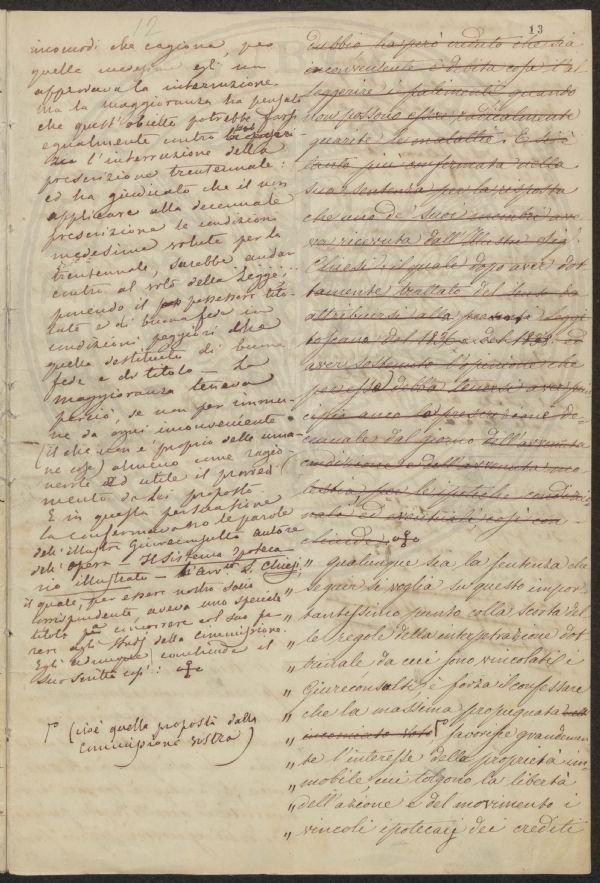 12
13
incomodi che cagiona, per
quelle medesime egli un
apprendeva la interruzione
ma la maggioranza ha pensato
che quest'obietto potrebbe farsi
egualmente contro
l'interruzione della
prescrizione trentennale:
ed ha giudicato che il non
applicare alla decennale
prescrizione le condizioni
medesime volute per la
trentennale, sarebbe andar
contro al voto della Legge:
ponendo il possessore tito-
lato e di buona fede in
condizioni peggiori di
quello destituito di buona
fede e di titolo — La
maggioranza teneva
perciò, se non per immu-
ne da ogni inconveniente
(il che non è proprio delle uma-
ne cose) almeno come ragio-
nevole ed utile il provvedi
mento da Lei proposto.
E in questa persuasione
la confermavano le parole
dell'illustre Giureconsulto autore
dell'opera — Il Sistema Ipoteca
rio illustrato — L. Chiesi,
il quale, per essere nostro socio
corrispondente aveva uno speciale
titolo per concorrere col suo pa-
rere agli studj della Commissione.
Egli adunque conchiude il
suo scritto così:
(cioè quella proposta dalla
Commissione vostra)
dubbio, ha però creduto che sia
inconveniente e debita cosa l'al-
leggerire i patimenti quando
non possono essere radicalmente
guarite le malattie. E si è
tanto più confermata nella
sua sentenza per la risposta
che uno de' suoi membri ave-
va ricevuta dall'Illustre Sig.
Chiesi: il quale dopo aver dot-
tamente trattato del senso da
attribuirsi alla Leggi
toscano del 1836 e del
aver sostenuto l'opinione che
per esso debba tenersi aver
anco la prescrizione de-
cennale dal giorno dell'avvenuta
condizione o dall'avvenuta
le ipoteche condizio
nali ed eventuali, così con-
chiude:
„ qualunque sia la sentenza che
„ seguir si voglia su questo impor-
„ tantissimo punto colla scorta del
„ le regole della interpretazione dot
„ trinale da cui sono vincolati i
„ Giureconsulti, è forza il confessare
„ che la massima propugnata
„ favorisce grandemen-
„ te l'interesse della proprietà im-
„ mobile, cui tolgono la libertà
„ dell'azione e del movimento i
„ vincoli ipotecarj dei crediti